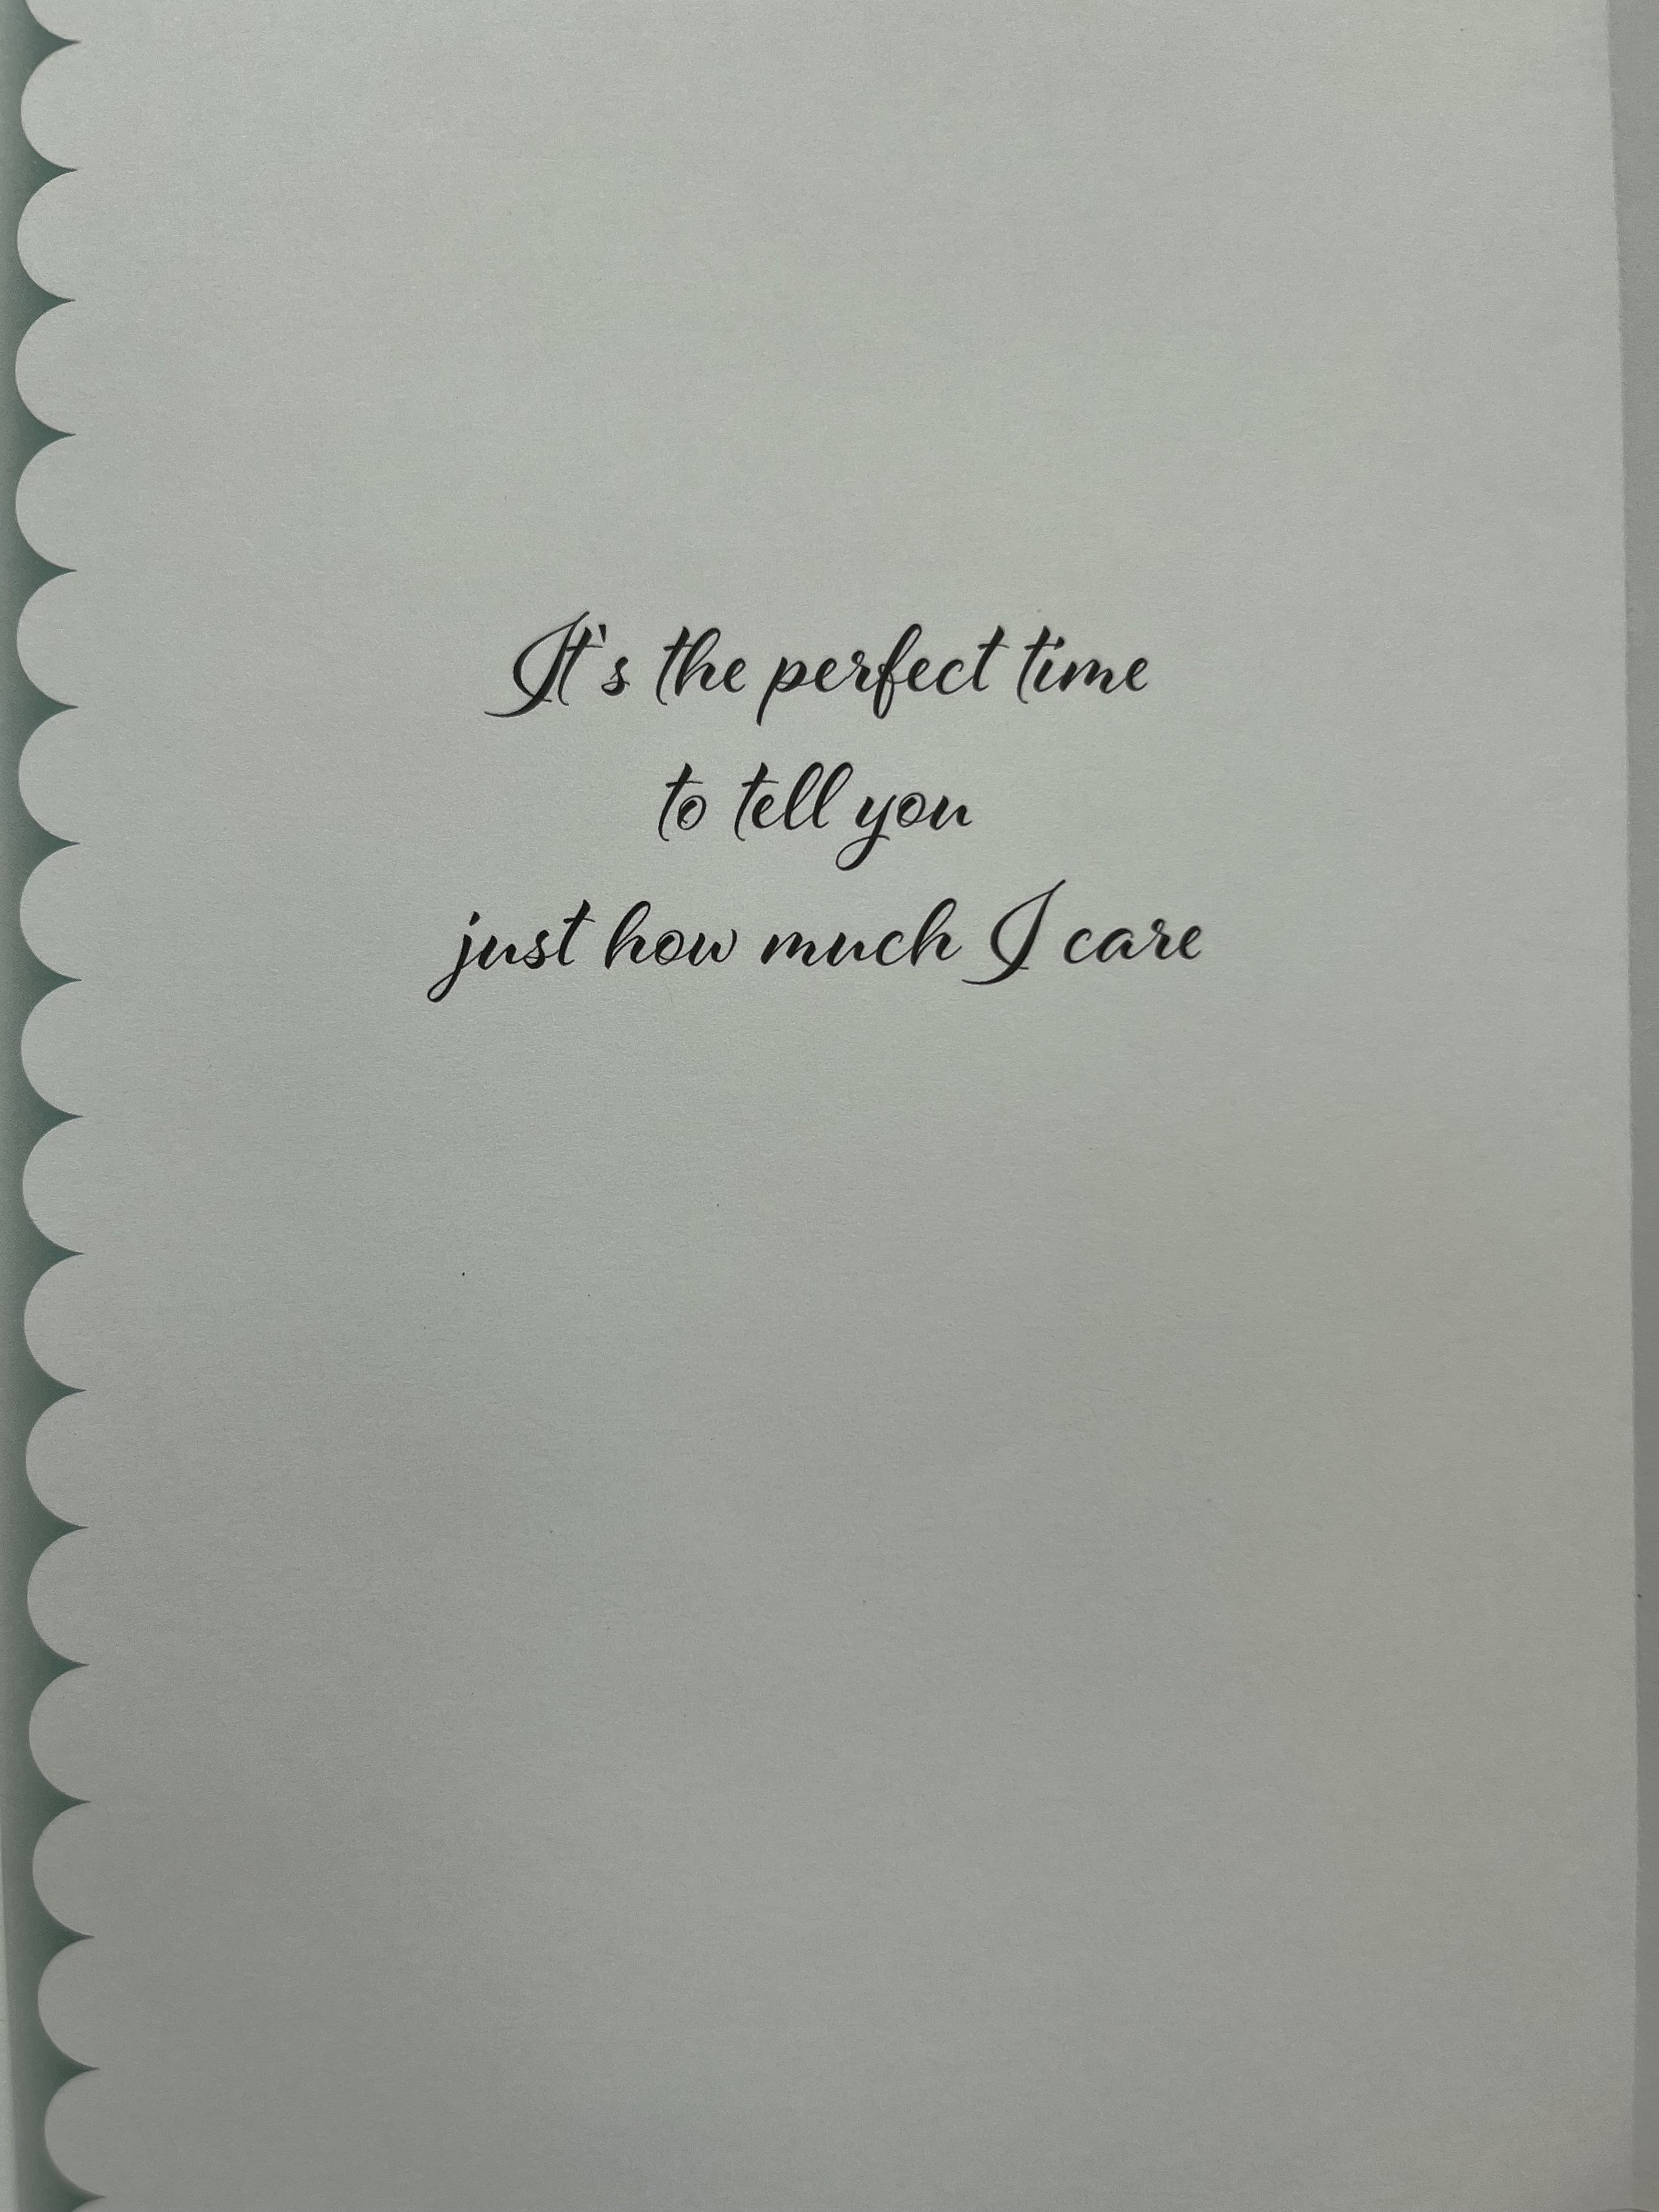 It's the perfect time
to tell you
just how much I care